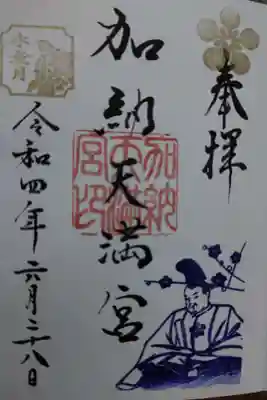 奉拝
加納天満宮
加納
天満
宮印
令和四年六月二十八日
水無月